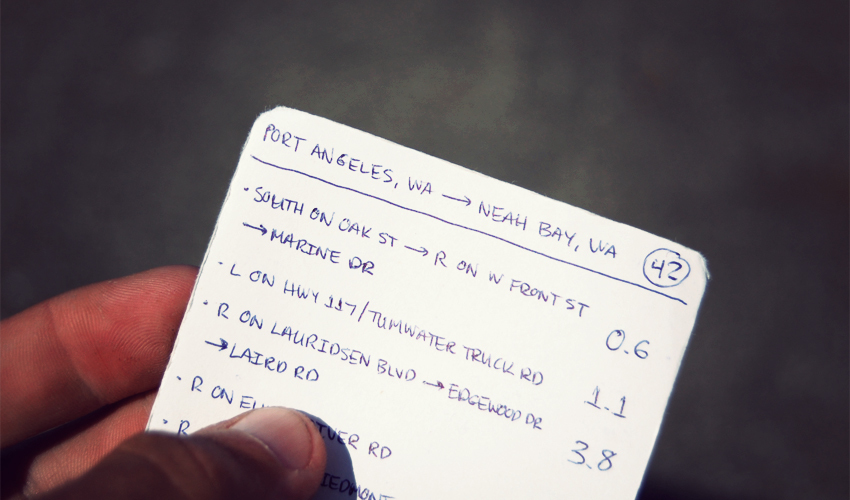 PORT ANGELES, WA → NEAH BAY, WA 42
• SOUTH ON OAK ST → R ON W FRONT ST
→ MARINE DR 0.6
• L ON HWY 117/TUMWATER TRUCK RD 1.1
• R ON LAURIDSEN BLVD → EDGEWOOD DR
→ LAIRD RD 3.8
• R ON RD
• R